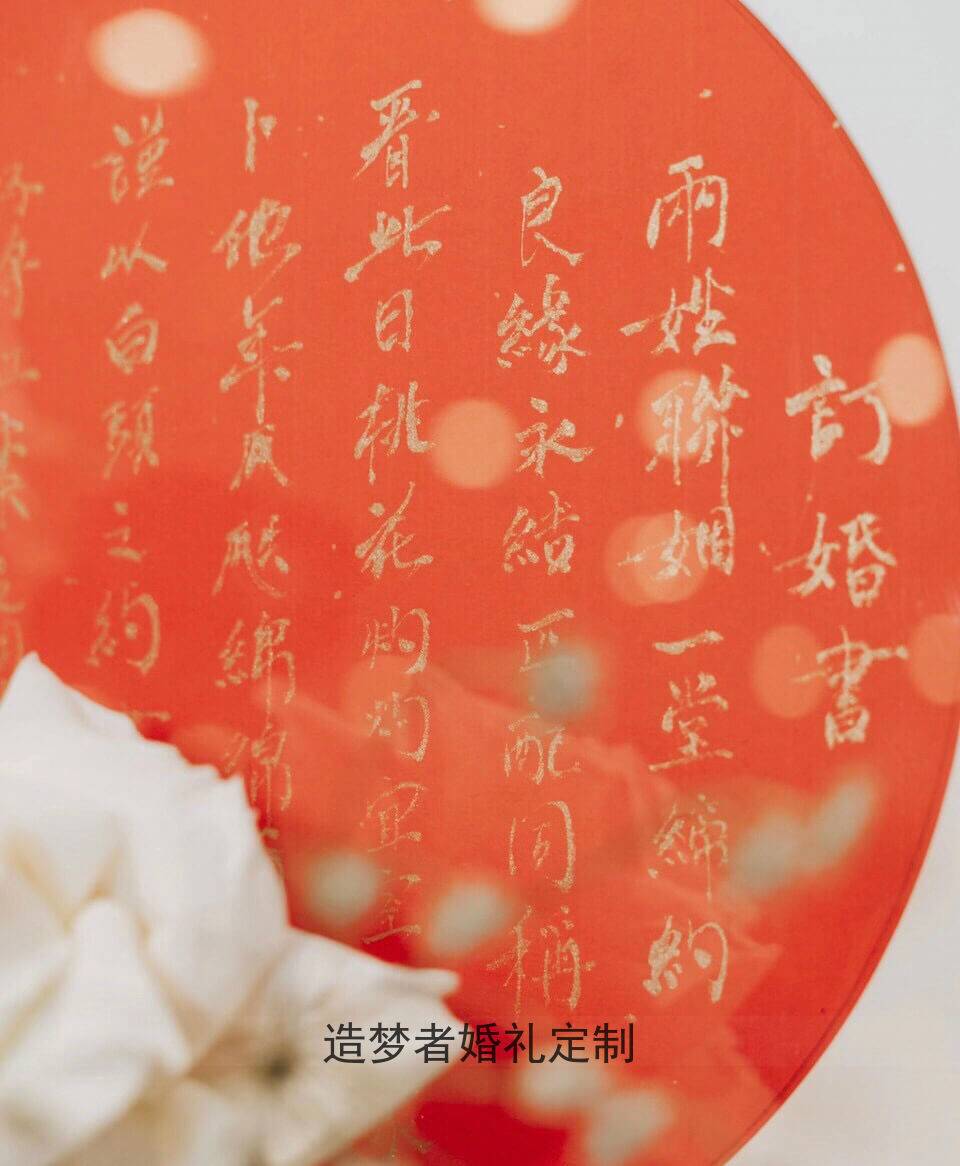 訂婚書
兩姓聯姻一堂締約
良緣永結匹配同稱
看此日桃花灼灼宜室
卜他年瓜瓞綿綿
謹以白頭之約
造梦者婚礼定制